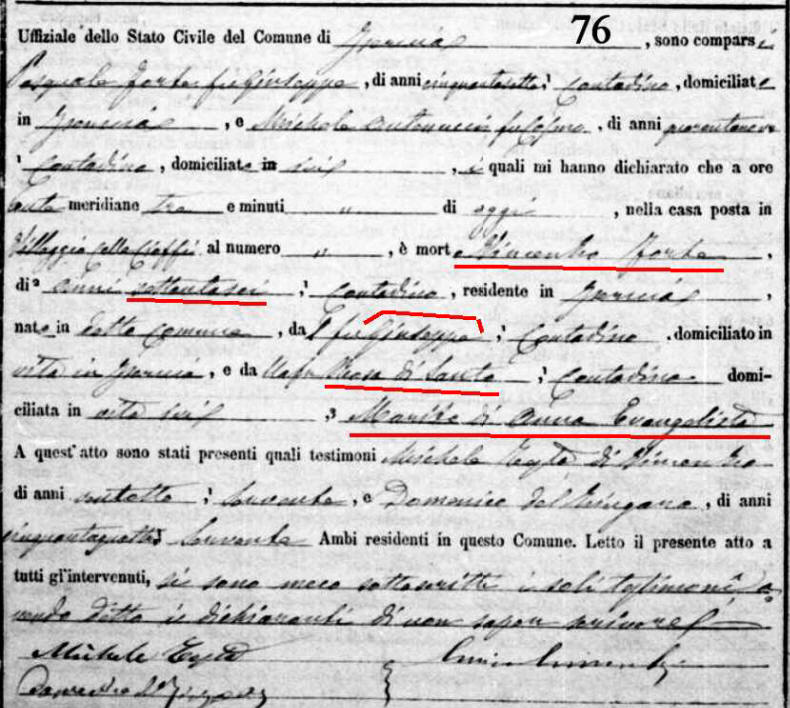 76
Uffiziale dello Stato Civile del Comune di , sono compars i
Pasquale Forte fu Giuseppe, di anni cinquantasette, contadino, domiciliato
in , e Michele Antonucci fu Cosmo, di anni quarantanove
contadino, domiciliato in ivi , i quali mi hanno dichiarato che a ore
meridiane tre e minuti " di oggi , nella casa posta in
Villaggio al numero " , è morto Vincenzo Forte ,
di ² anni settantasei, ¹ contadino, residente in ,
nato in detto comune , da l fu Giuseppe , ¹ contadino , domiciliato in
vita in , e da lla fu Rosa di Santo , ¹ contadina domi-
ciliata in vita ivi , ³ Marito di Anna Evangelista
A quest' atto sono stati presenti quali testimoni Michele Testa di Vincenzo
di anni ventotto , ¹ , e Domenico del , di anni
cinquantaquattro Ambi residenti in questo Comune. Letto il presente atto a
tutti gl' intervenuti, si sono meco sottoscritti i soli testimoni a-
vendo detto i dichiaranti di non saper scrivere
Michele Testa